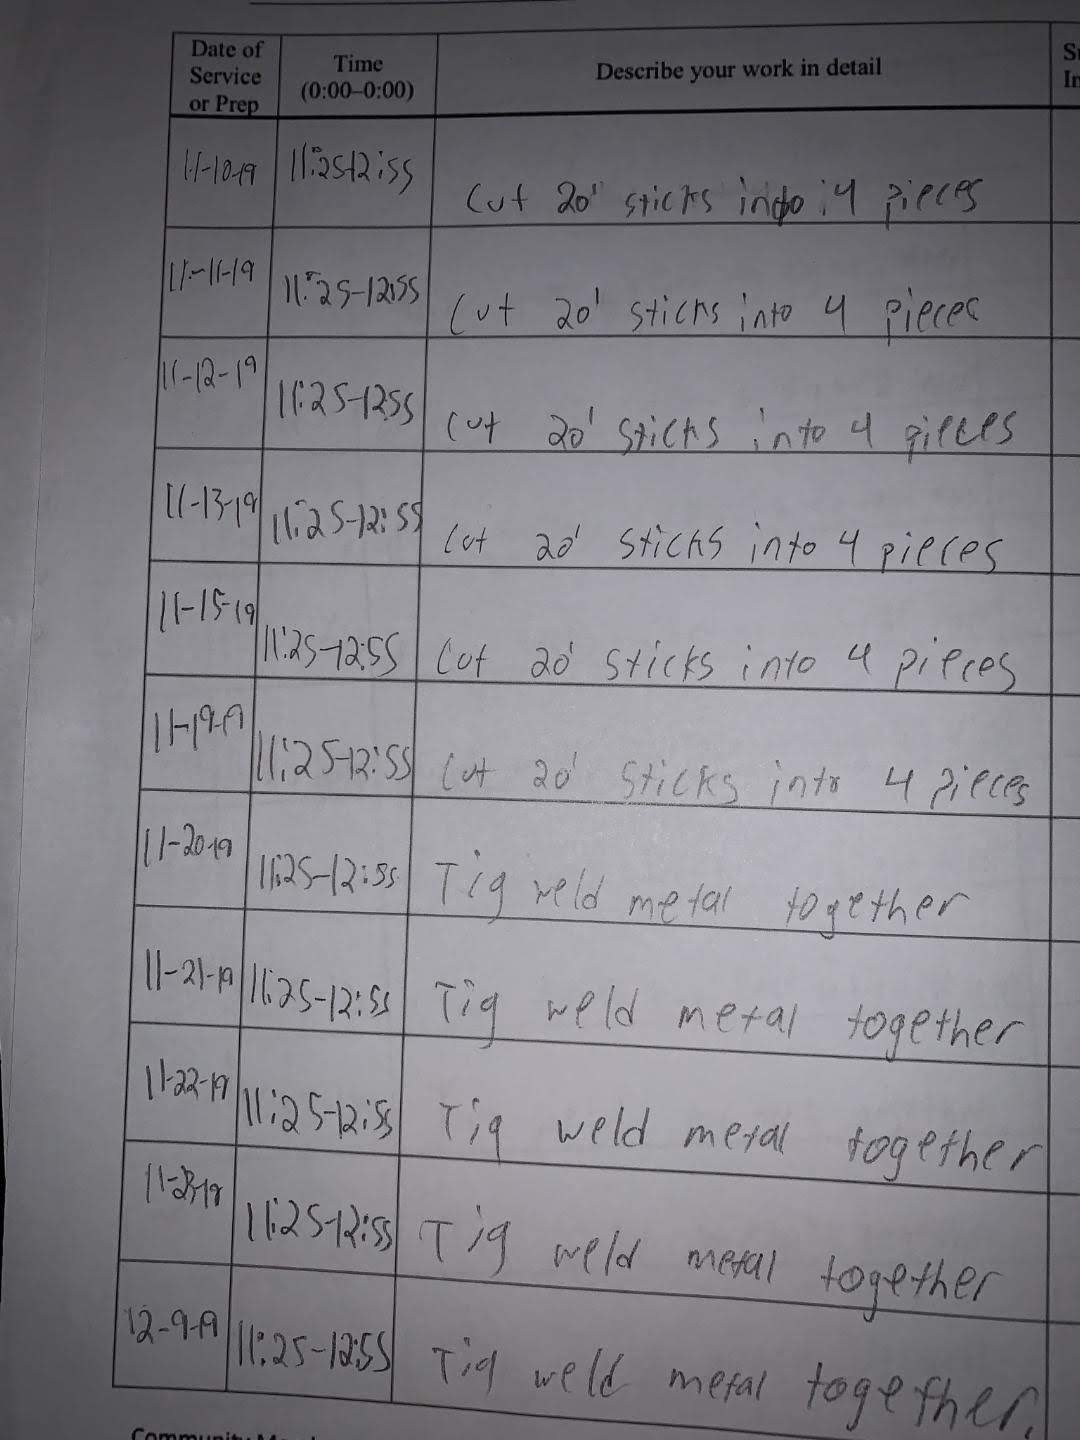 Date of Service or Prep Time (0:00–0:00) Describe your work in detail
11-10-19 11:25-12:55 Cut 20' sticks into 4 pieces
11-11-19 11:25-12:55 Cut 20' sticks into 4 pieces
11-12-19 11:25-1255 Cut 20' sticks into 4 pieces
11-13-19 11:25-12:55 Cut 20' sticks into 4 pieces
11-15-19 11:25-12:55 Cut 20' sticks into 4 pieces
11-19-19 11:25-12:55 Cut 20' sticks into 4 pieces
11-20-19 11:25-12:55 Tig weld metal together
11-21-19 11:25-12:55 Tig weld metal together
11-22-19 11:25-12:55 Tig weld metal together
11:25-12:55 Tig weld metal together
12-9-19 11:25-12:55 Tig weld metal together.
Community